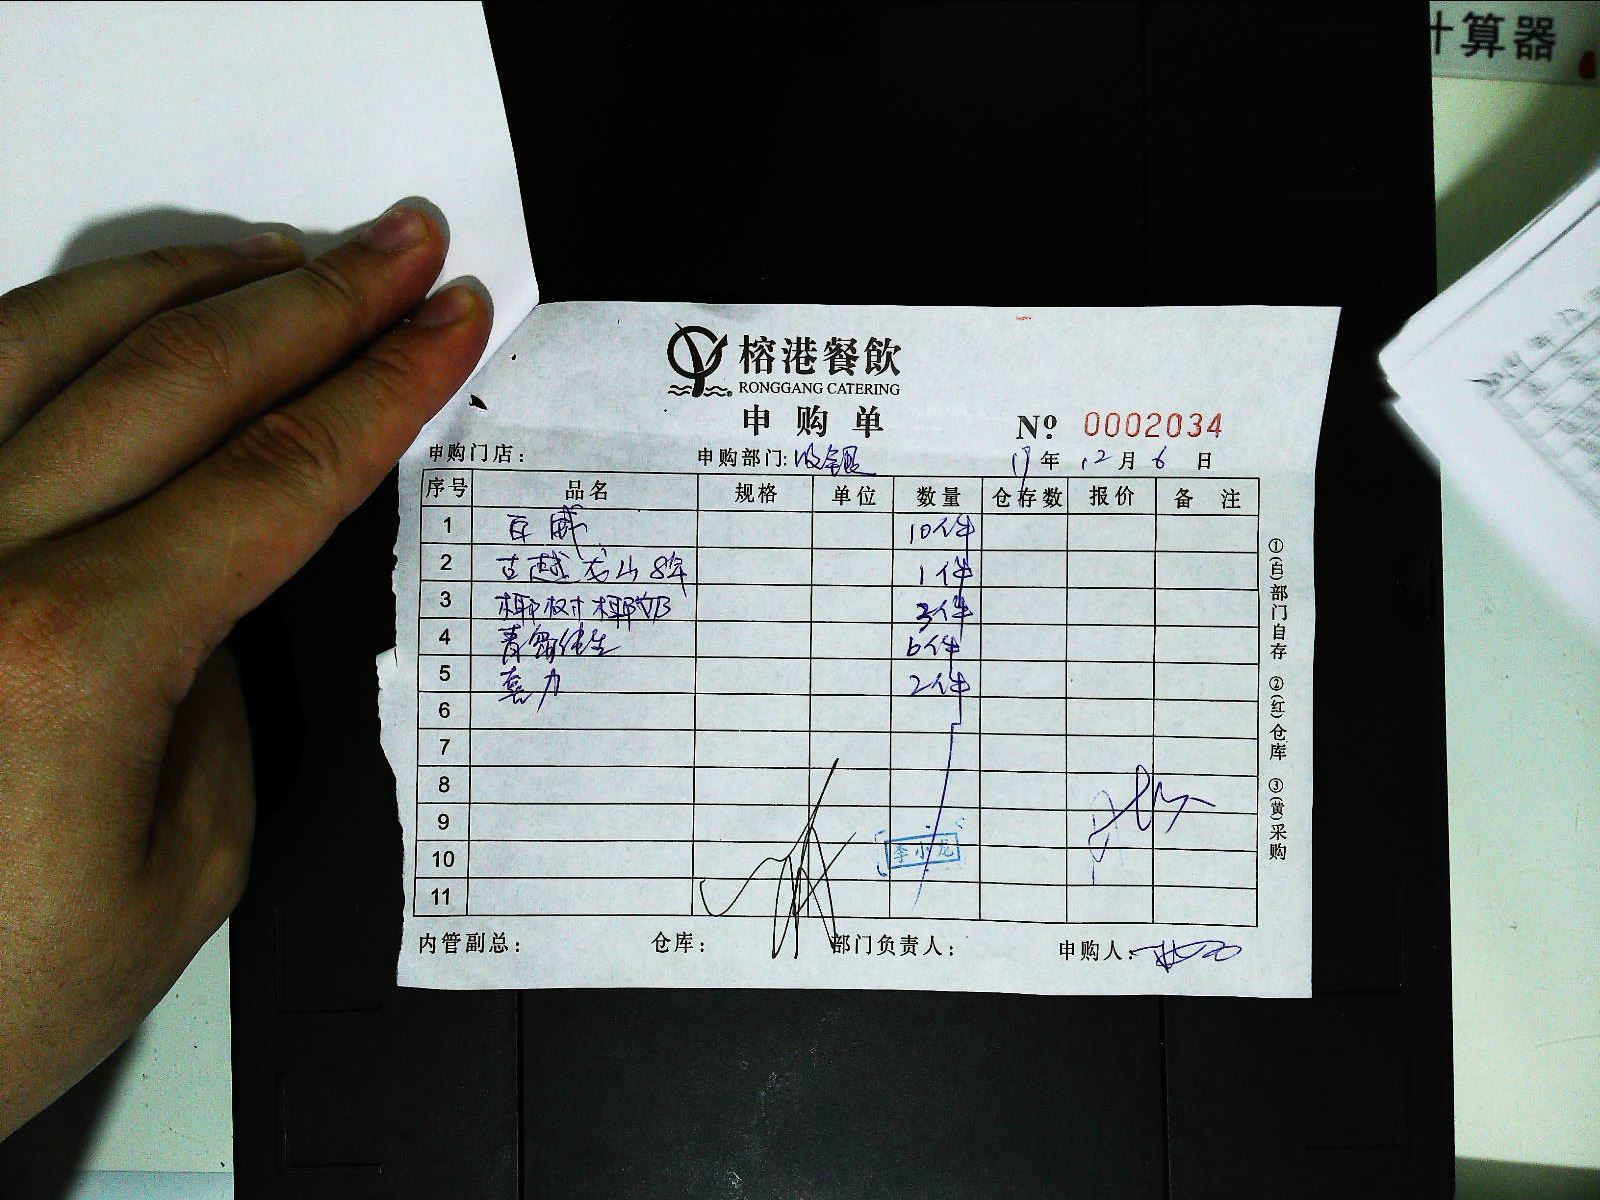 计算器
榕港餐飲
RONGGANG CATERING
申购单
№ 0002034
申购门店： 申购部门:收银 19年 12月 6日
序号 品名 规格 单位 数量 仓存数 报价 备 注
1 百威 10件
2 古越龙山8年 1件
3 椰树椰奶 3件
4 青岛纯生 6件
5 喜力 2件
6
7
8
9
10 李小龙
11
内管副总： 仓库： 部门负责人： 申购人：
①(白)部门自存 ②(红)仓库 ③(黄)采购